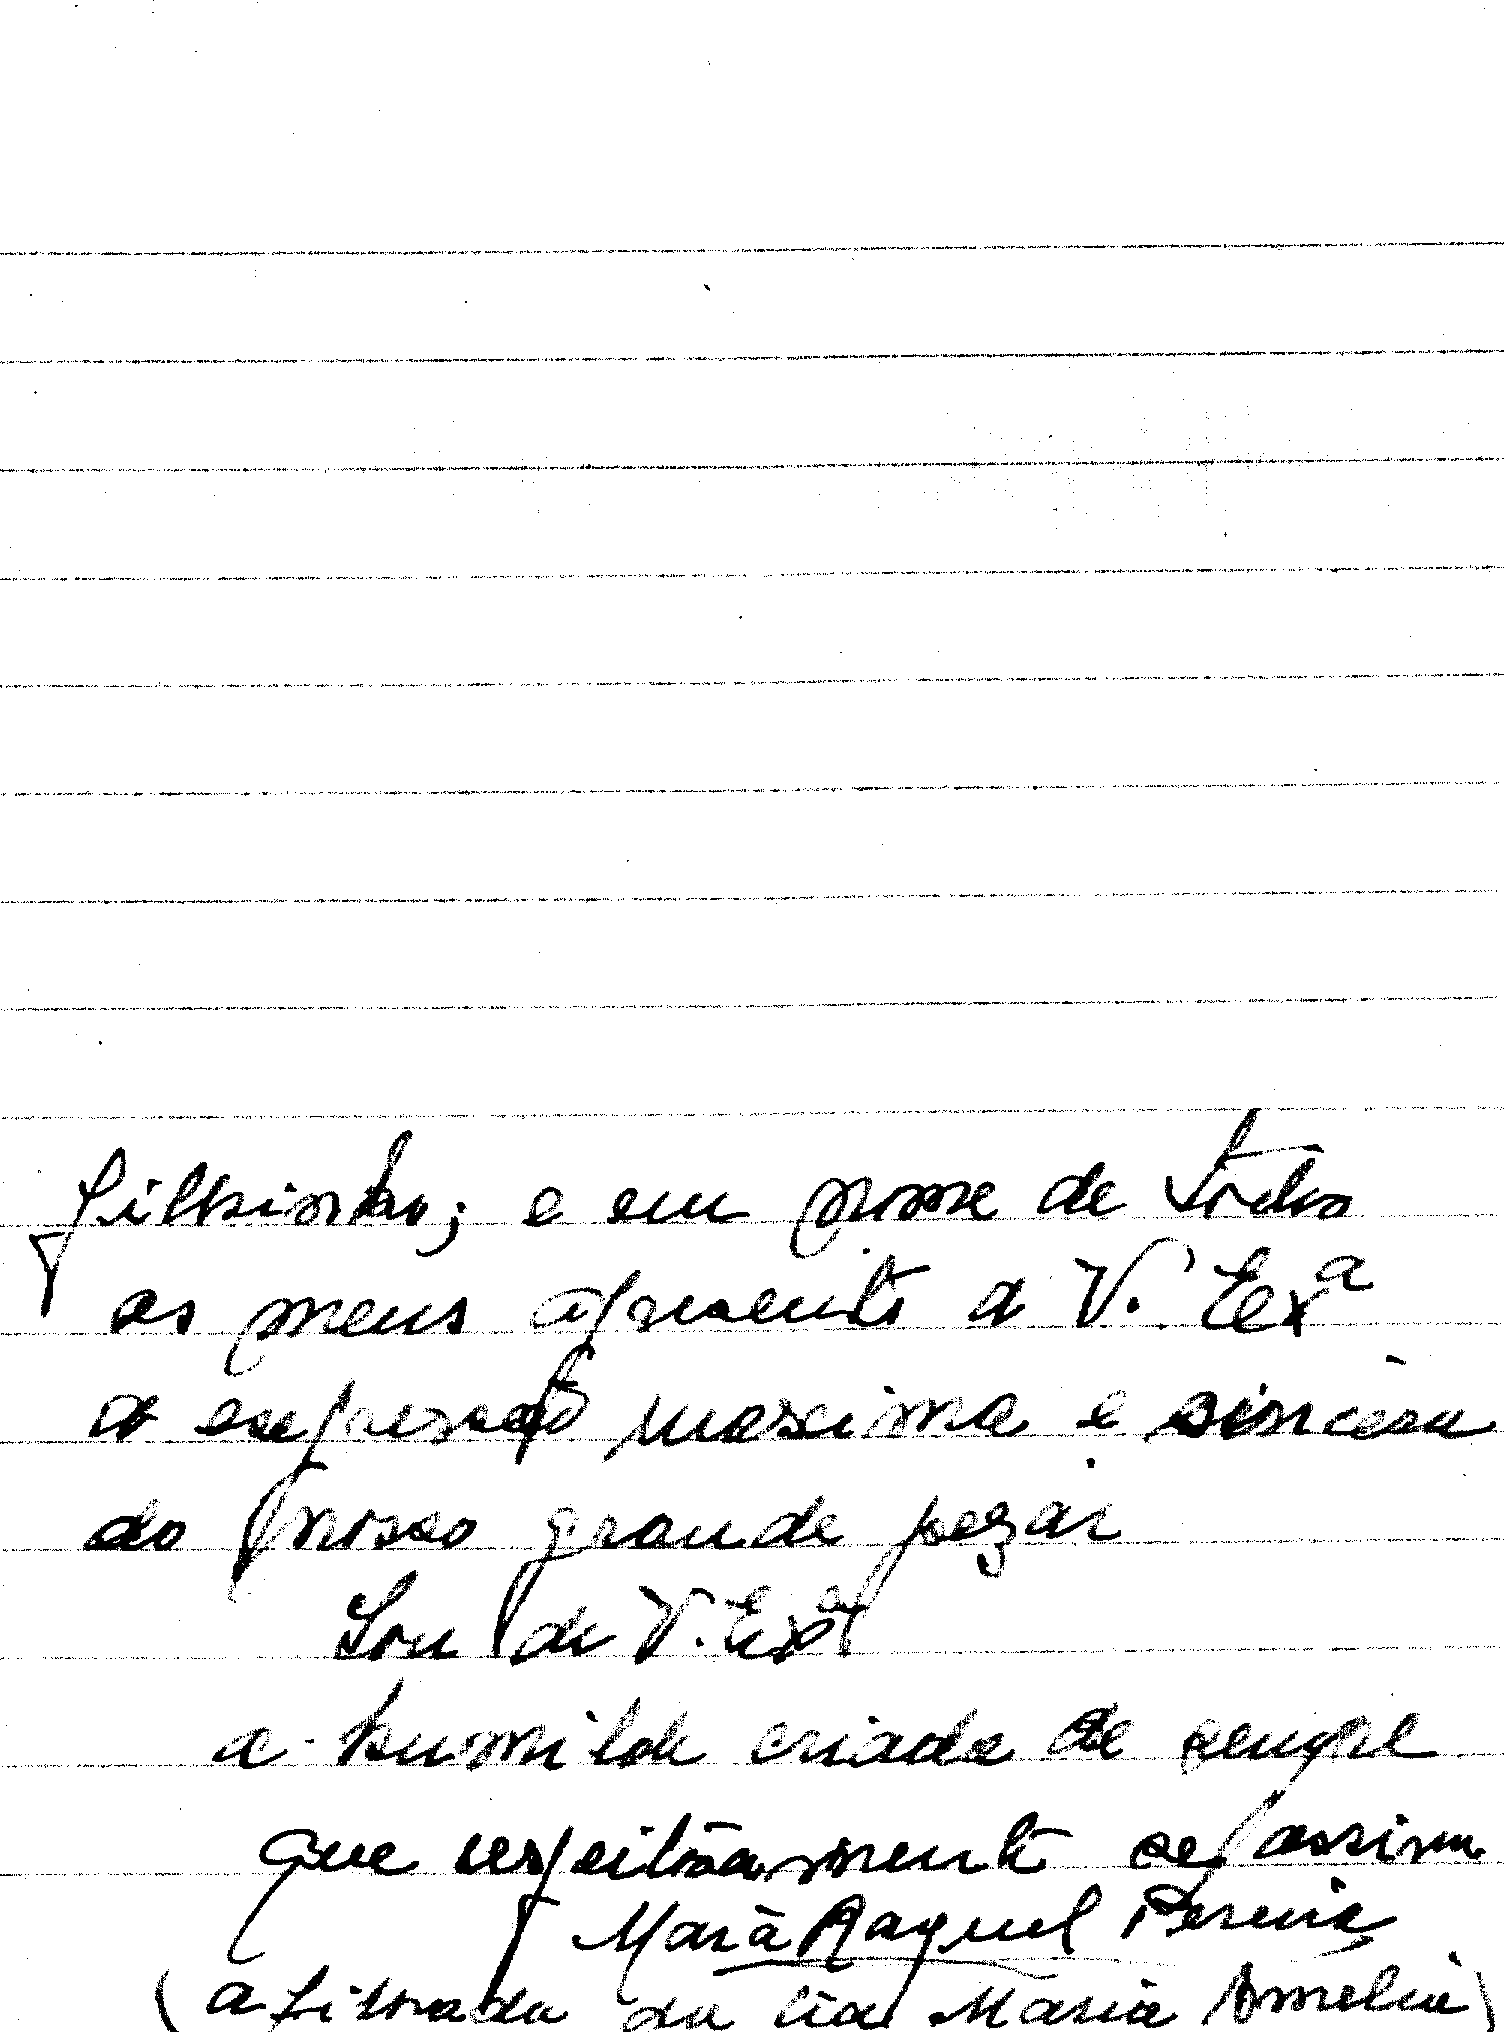 filhinho; e em nome de todos
os meus apresento a V. Exª
a expressão maxima e sincera
do nosso grande pezar
Sou de V. Exª
a humilde criada de sempre
que respeitosamente se assina
Maria Raquel Pereira
(afilhada da tia Maria Amelia)